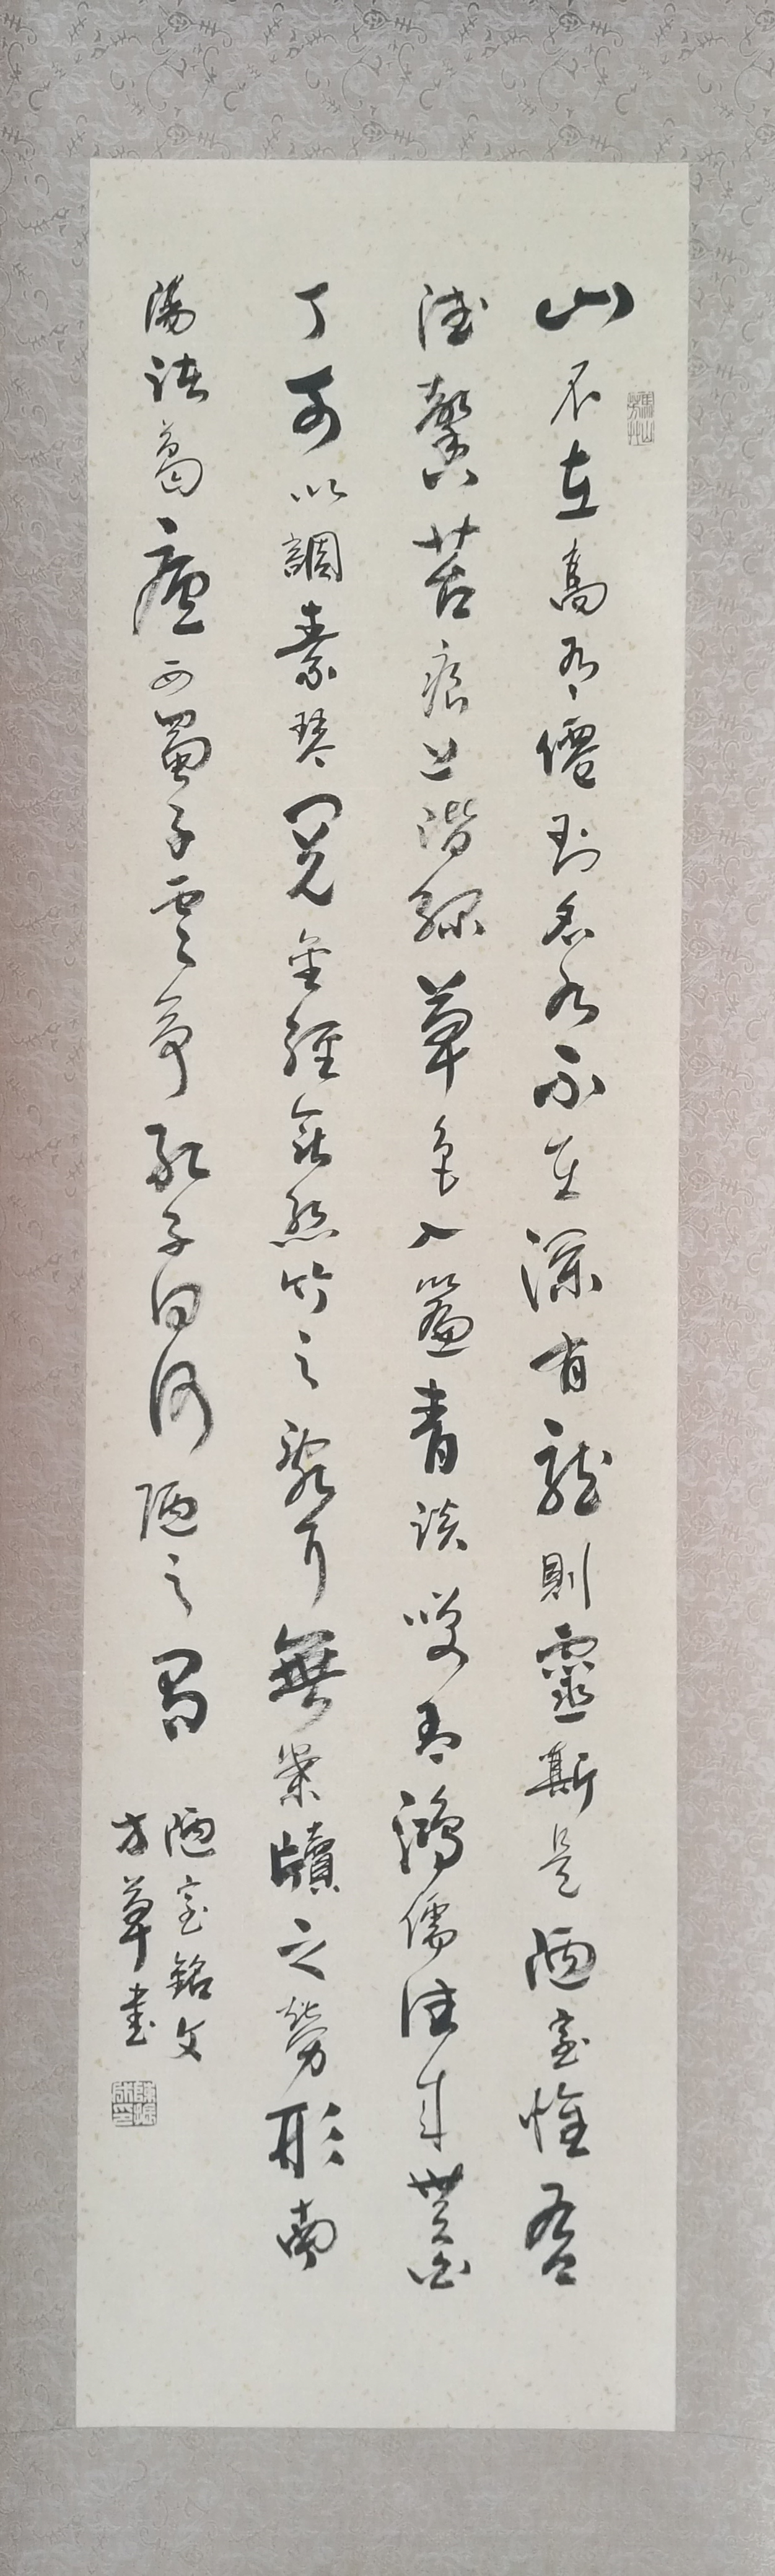 山不在高有僊則名水不在深有龍則靈斯是陋室惟吾
德馨苔痕上階綠草色入簾青談笑有鴻儒往來無白
丁可以調素琴閱金經無絲竹之亂耳無案牘之勞形南
陽諸葛廬西蜀子雲亭孔子曰何陋之有
陋室銘文
方草書